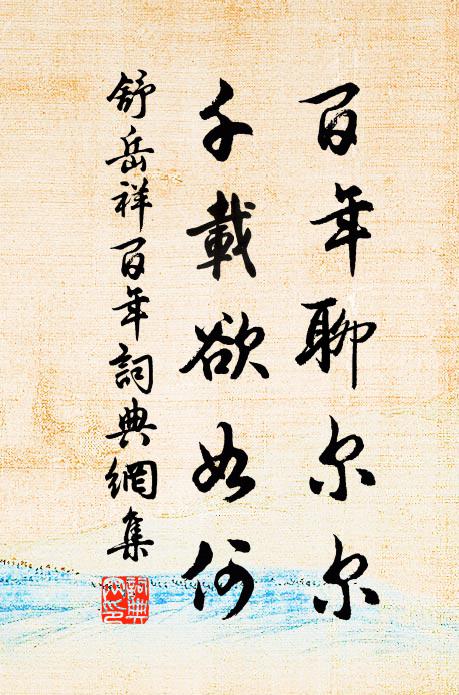 百年聊尔尔
千載欲如何
舒岳祥百年詞典網集